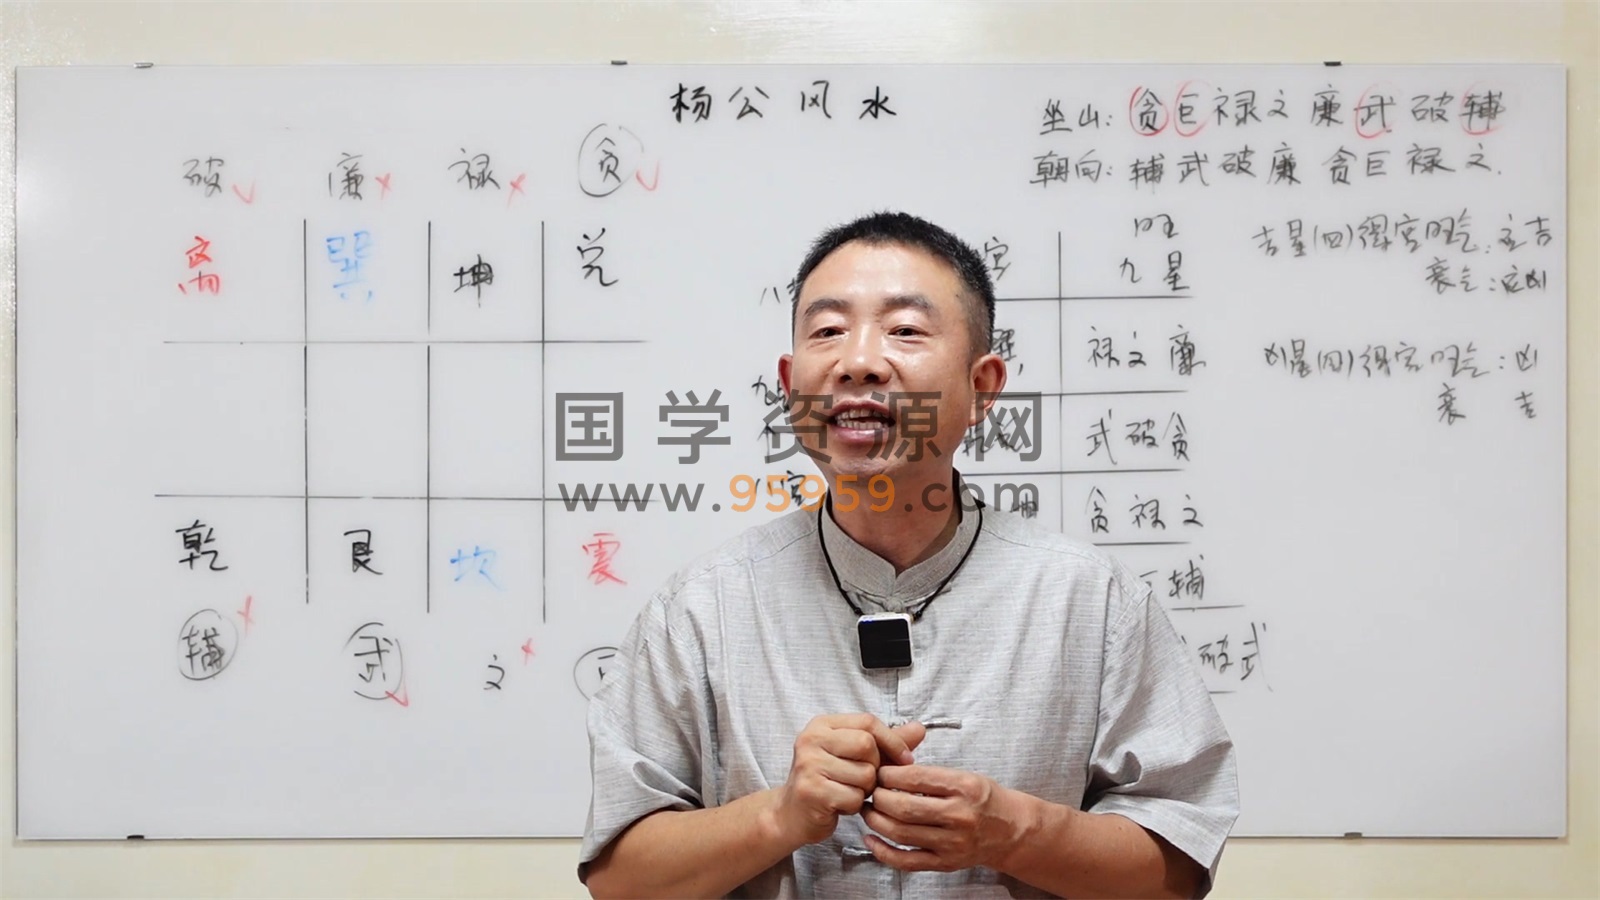 杨公风水
坐山：贪巨禄文廉武破辅
朝向：辅武破廉贪巨禄文.
破 廉 禄 贪
离 巽 坤 兑
乾 艮 坎 震
辅 武 文
宫 旺
九星
禄文廉
武破贪
贪禄文
辅
破武
吉星(四)得宫旺气：主吉
衰气：主凶
凶星(四)得宫旺气：凶
衰 吉
国学资源网
www.95959.com